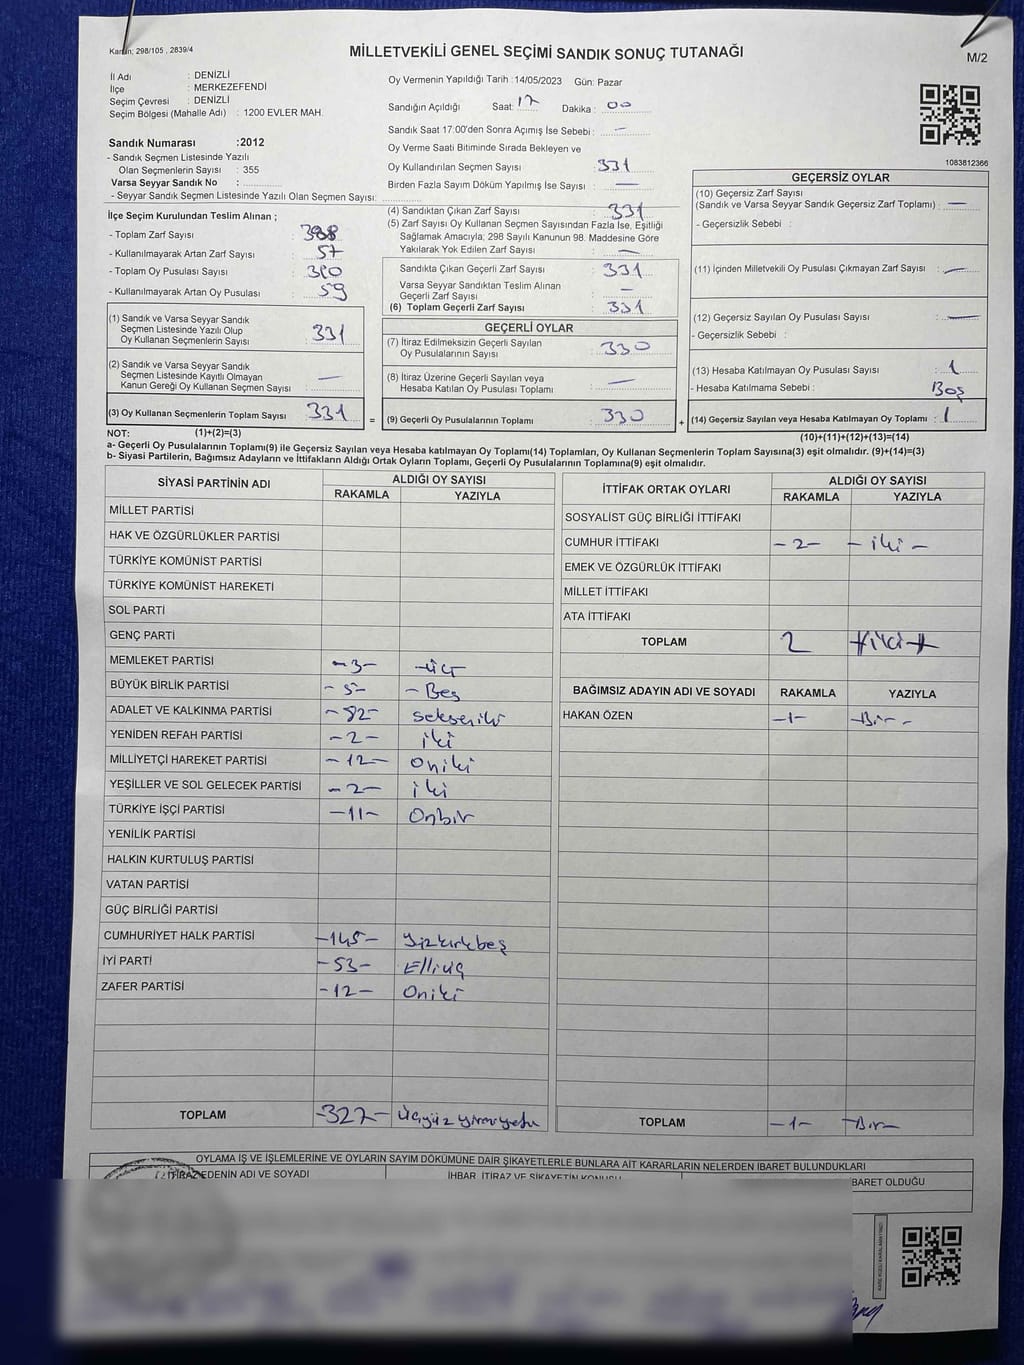 Kanun; 298/105 , 2839/4
MİLLETVEKİLİ GENEL SEÇİMİ SANDIK SONUÇ TUTANAĞI
M/2
İl Adı : DENİZLİ
İlçe : MERKEZEFENDİ
Seçim Çevresi : DENİZLİ
Seçim Bölgesi (Mahalle Adı) : 1200 EVLER MAH.
Sandık Numarası :2012
- Sandık Seçmen Listesinde Yazılı
Olan Seçmenlerin Sayısı : 355
Varsa Seyyar Sandık No :
- Seyyar Sandık Seçmen Listesinde Yazılı Olan Seçmen Sayısı:
Oy Vermenin Yapıldığı Tarih :14/05/2023 Gün: Pazar
Sandığın Açıldığı Saat: 17 Dakika : 00
Sandık Saat 17:00'den Sonra Açımış İse Sebebi : —
Oy Verme Saati Bitiminde Sırada Bekleyen ve
Oy Kullandırılan Seçmen Sayısı : 331
Birden Fazla Sayım Döküm Yapılmış İse Sayısı : —
1083812366
İlçe Seçim Kurulundan Teslim Alınan ;
- Toplam Zarf Sayısı : 388
- Kullanılmayarak Artan Zarf Sayısı : 57
- Toplam Oy Pusulası Sayısı : 390
- Kullanılmayarak Artan Oy Pusulası : 59
(1) Sandık ve Varsa Seyyar Sandık
Seçmen Listesinde Yazılı Olup
Oy Kullanan Seçmenlerin Sayısı : 331
(2) Sandık ve Varsa Seyyar Sandık
Seçmen Listesinde Kayıtlı Olmayan
Kanun Gereği Oy Kullanan Seçmen Sayısı : —
(3) Oy Kullanan Seçmenlerin Toplam Sayısı : 331 =
(4) Sandıktan Çıkan Zarf Sayısı : 331
(5) Zarf Sayısı Oy Kullanan Seçmen Sayısından Fazla İse, Eşitliği
Sağlamak Amacıyla; 298 Sayılı Kanunun 98. Maddesine Göre
Yakılarak Yok Edilen Zarf Sayısı : —
Sandıkta Çıkan Geçerli Zarf Sayısı : 331
Varsa Seyyar Sandıktan Teslim Alınan
Geçerli Zarf Sayısı : —
(6) Toplam Geçerli Zarf Sayısı : 331
GEÇERLİ OYLAR
(7) İtiraz Edilmeksizin Geçerli Sayılan
Oy Pusulalarının Sayısı : 330
(8) İtiraz Üzerine Geçerli Sayılan veya
Hesaba Katılan Oy Pusulası Toplamı : —
(9) Geçerli Oy Pusulalarının Toplamı : 330 +
GEÇERSİZ OYLAR
(10) Geçersiz Zarf Sayısı
(Sandık ve Varsa Seyyar Sandık Geçersiz Zarf Toplamı) : —
- Geçersizlik Sebebi :
(11) İçinden Milletvekili Oy Pusulası Çıkmayan Zarf Sayısı : —
(12) Geçersiz Sayılan Oy Pusulası Sayısı : —
- Geçersizlik Sebebi :
(13) Hesaba Katılmayan Oy Pusulası Sayısı : 1
- Hesaba Katılmama Sebebi : Boş
(14) Geçersiz Sayılan veya Hesaba Katılmayan Oy Toplamı : 1
NOT: (1)+(2)=(3)
(10)+(11)+(12)+(13)=(14)
a- Geçerli Oy Pusulalarının Toplamı(9) ile Geçersiz Sayılan veya Hesaba katılmayan Oy Toplamı(14) Toplamları, Oy Kullanan Seçmenlerin Toplam Sayısına(3) eşit olmalıdır. (9)+(14)=(3)
b- Siyasi Partilerin, Bağımsız Adayların ve İttifakların Aldığı Ortak Oyların Toplamı, Geçerli Oy Pusulalarının Toplamına(9) eşit olmalıdır.
SİYASİ PARTİNİN ADI ALDIĞI OY SAYISI
RAKAMLA YAZIYLA
MİLLET PARTİSİ
HAK VE ÖZGÜRLÜKLER PARTİSİ
TÜRKİYE KOMÜNİST PARTİSİ
TÜRKİYE KOMÜNİST HAREKETİ
SOL PARTİ
GENÇ PARTİ
MEMLEKET PARTİSİ -3- -üç
BÜYÜK BİRLİK PARTİSİ -5- -Beş
ADALET VE KALKINMA PARTİSİ -82- sekseniki
YENİDEN REFAH PARTİSİ -2- iki
MİLLİYETÇİ HAREKET PARTİSİ -12- Oniki
YEŞİLLER VE SOL GELECEK PARTİSİ -2- iki
TÜRKİYE İŞÇİ PARTİSİ -11- Onbir
YENİLİK PARTİSİ
HALKIN KURTULUŞ PARTİSİ
VATAN PARTİSİ
GÜÇ BİRLİĞİ PARTİSİ
CUMHURİYET HALK PARTİSİ -145- yüzkırkbeş
İYİ PARTİ -53- Elliüç
ZAFER PARTİSİ -12- Oniki
TOPLAM -327- Üçyüzyirmiyedi
İTTİFAK ORTAK OYLARI ALDIĞI OY SAYISI
RAKAMLA YAZIYLA
SOSYALİST GÜÇ BİRLİĞİ İTTİFAKI
CUMHUR İTTİFAKI -2- -iki-
EMEK VE ÖZGÜRLÜK İTTİFAKI
MİLLET İTTİFAKI
ATA İTTİFAKI
TOPLAM 2 iki
BAĞIMSIZ ADAYIN ADI VE SOYADI RAKAMLA YAZIYLA
HAKAN ÖZEN -1- -Bir-
TOPLAM -1- -Bir-
OYLAMA İŞ VE İŞLEMLERİNE VE OYLARIN SAYIM DÖKÜMÜNE DAİR ŞİKAYETLERLE BUNLARA AİT KARARLARIN NELERDEN İBARET BULUNDUKLARI
İTİRAZ EDENİN ADI VE SOYADI İHBAR, İTİRAZ VE ŞİKAYETİN KONUSU BARET OLDUĞU